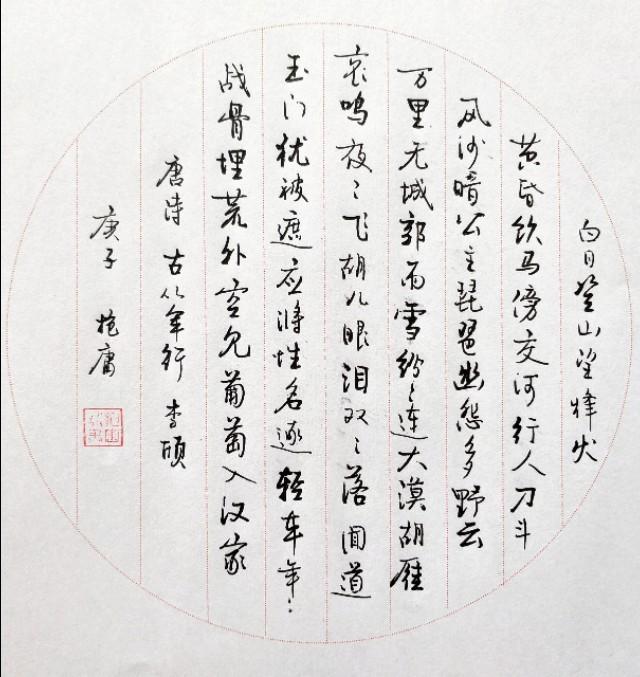 白日登山望烽火
黄昏饮马傍交河行人刀斗
风沙暗公主琵琶幽怨多野云
万里无城郭雨雪纷〻连大漠胡雁
哀鸣夜〻飞胡儿眼泪双〻落闻道
玉门犹被遮应将性名逐轻车年〻
战骨埋荒外空见葡萄入汉家
唐诗 古从军行 李颀
庚子 抱庸